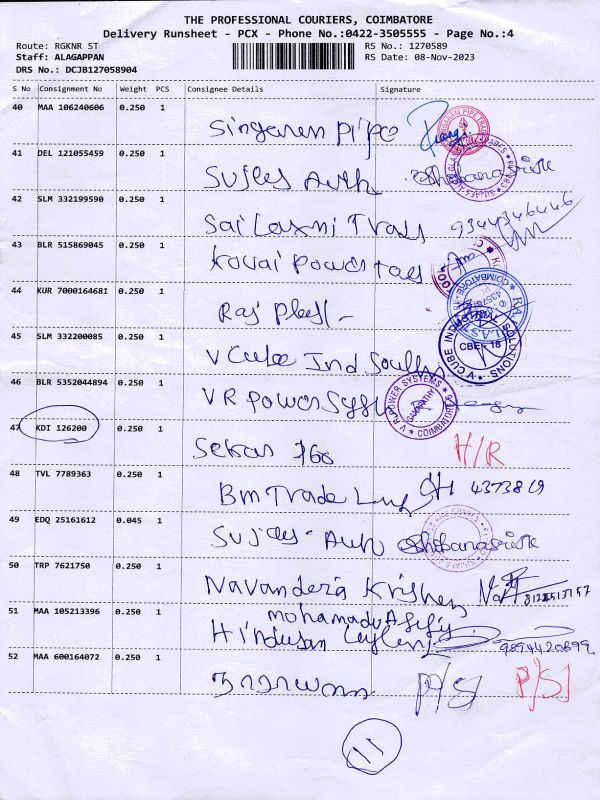 THE PROFESSIONAL COURIERS, COIMBATORE
Delivery Runsheet - PCX - Phone No.:0422-3505555 - Page No.:4
Route: RGKNR ST RS No.: 1270589
Staff: ALAGAPPAN RS Date: 08-Nov-2023
DRS No.: DCJB127058904
S No Consignment No Weight PCS Consignee Details Signature
40 MAA 106240606 0.250 1
Singaram Pipe
41 DEL 121055459 0.250 1
Sujles Auth
42 SLM 332199590 0.250 1
Sai Laxmi Trads 9344346446
43 BLR 515869045 0.250 1
Kovai Power
44 KUR 7000164681 0.250 1
Raj
45 SLM 332200085 0.250 1
V Cube Ind
V CUBE SOLUTIONS CBE - 18
46 BLR 5352044894 0.250 1
VR Power
V R POWER SYSTEMS COIMBATORE
47 KDI 126200 0.250 1
Sekar H/R
48 TVL 7789363 0.250 1
Bm Trade
49 EDQ 25161612 0.045 1
Sujles Auth
50 TRP 7621750 0.250 1
Navandera Krishen
51 MAA 105213396 0.250 1
Hindusan 9894420899
52 MAA 600164072 0.250 1
P/SJ P/SJ
11